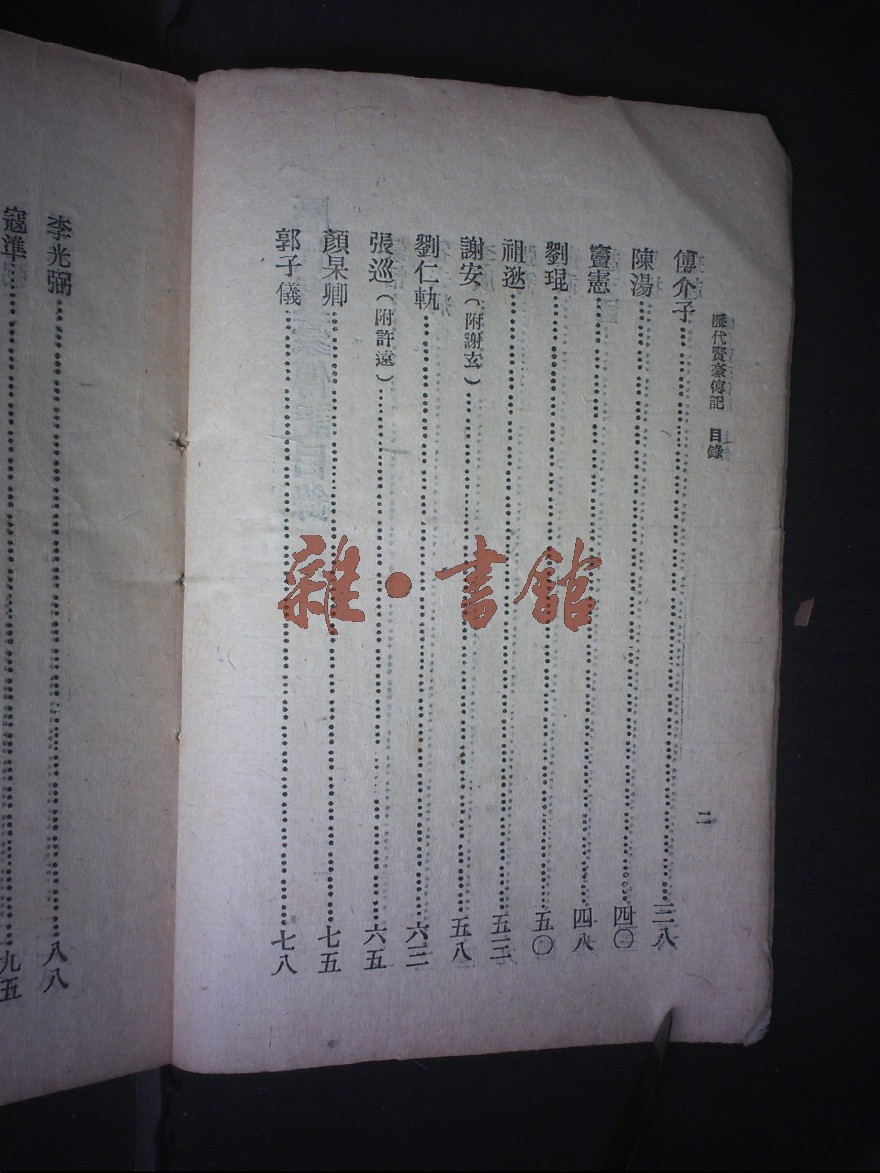 歷代賢豪傳記　目錄
二
傅介子……三八
陳湯……四〇
竇憲……四八
劉琨……五〇
祖逖……五三
謝安（附謝玄）……五八
劉仁軌……六二
張巡（附許遠）……六五
顏杲卿……七五
郭子儀……七八
李光弼……八八
寇準……九五
雜·書館